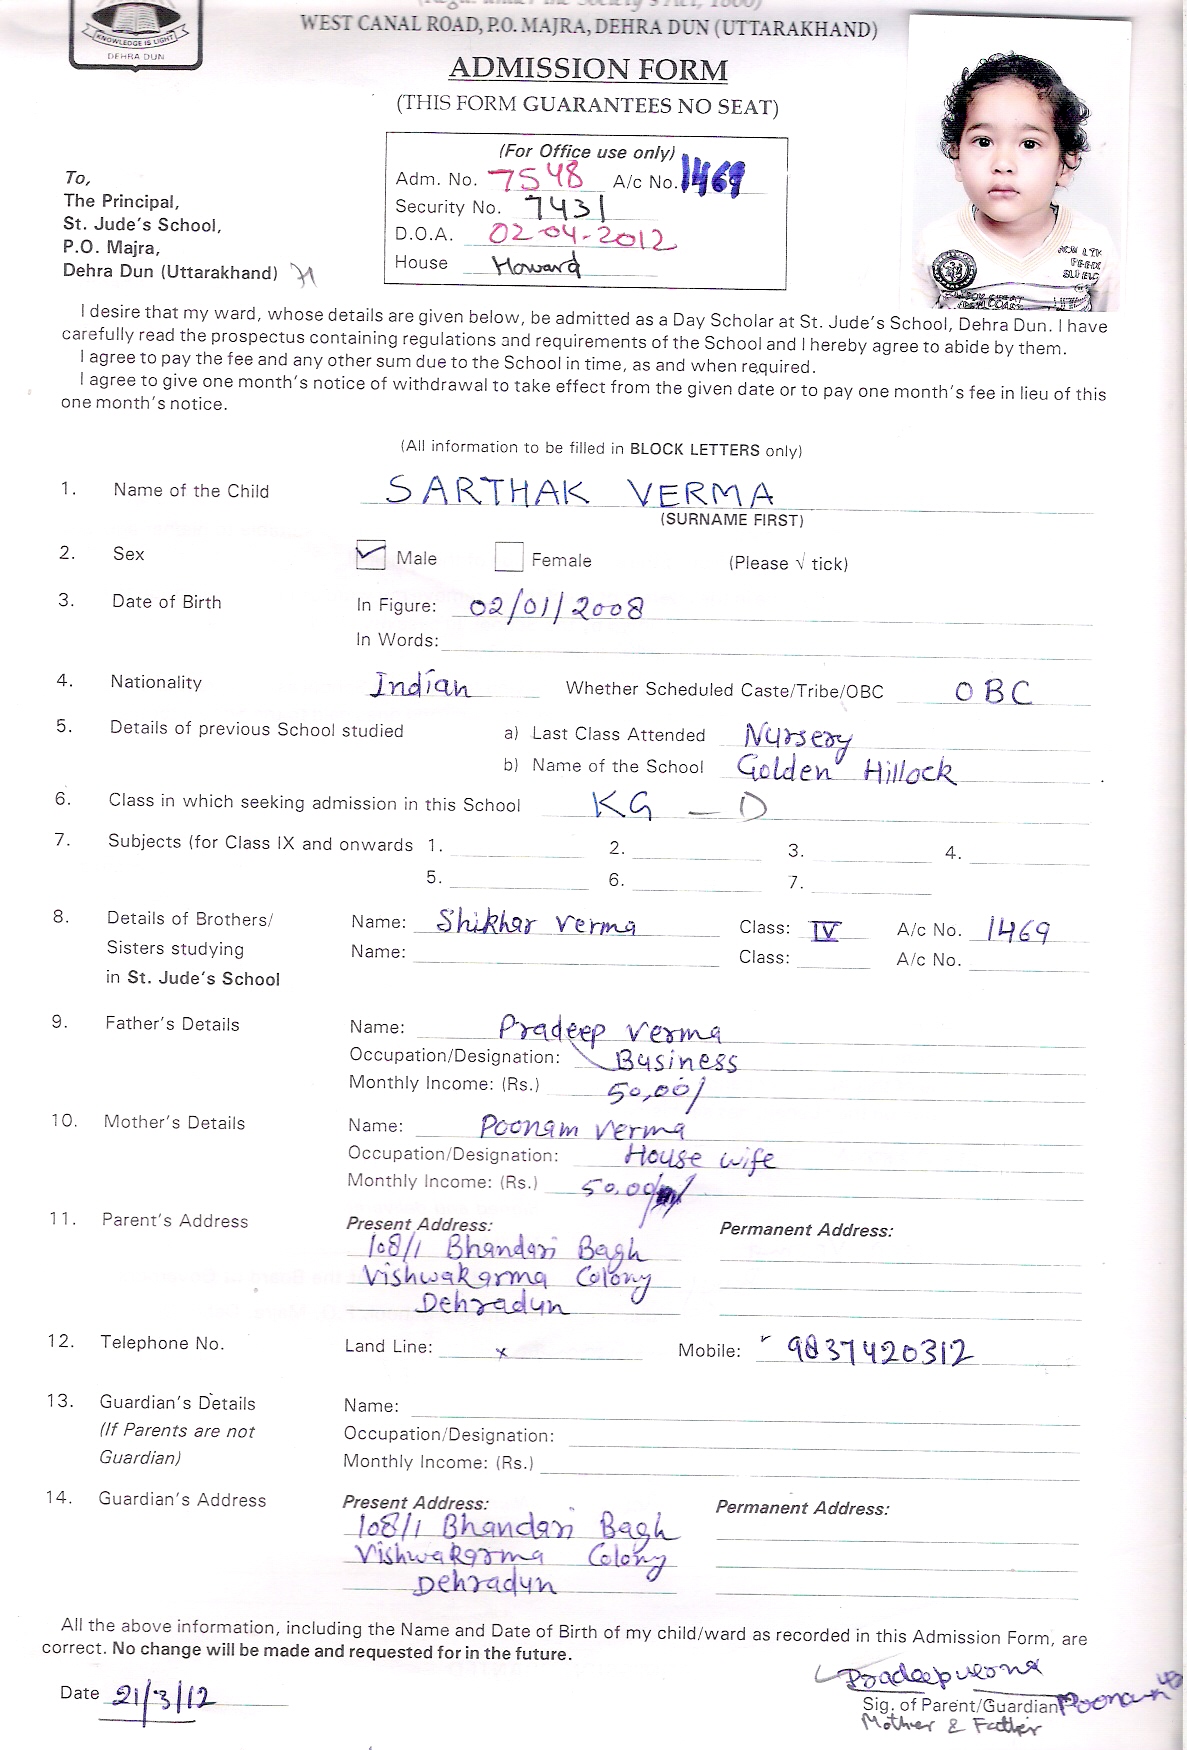 KNOWLEDGE IS LIGHT
DEHRA DUN
WEST CANAL ROAD, P.O. MAJRA, DEHRA DUN (UTTARAKHAND)
ADMISSION FORM
(THIS FORM GUARANTEES NO SEAT)
(For Office use only)
Adm. No. 7548 A/c No. 1469
Security No. 7431
D.O.A. 02-04-2012
House Howard
To,
The Principal,
St. Jude's School,
P.O. Majra,
Dehra Dun (Uttarakhand)
I desire that my ward, whose details are given below, be admitted as a Day Scholar at St. Jude's School, Dehra Dun. I have
carefully read the prospectus containing regulations and requirements of the School and I hereby agree to abide by them.
I agree to pay the fee and any other sum due to the School in time, as and when required.
I agree to give one month's notice of withdrawal to take effect from the given date or to pay one month's fee in lieu of this
one month's notice.
(All information to be filled in BLOCK LETTERS only)
1. Name of the Child SARTHAK VERMA
(SURNAME FIRST)
2. Sex Male Female (Please √ tick)
3. Date of Birth In Figure: 02/01/2008
In Words:
4. Nationality Indian Whether Scheduled Caste/Tribe/OBC OBC
5. Details of previous School studied a) Last Class Attended Nursery
b) Name of the School Golden Hillock
6. Class in which seeking admission in this School KG - D
7. Subjects (for Class IX and onwards 1. 2. 3. 4.
5. 6. 7.
8. Details of Brothers/ Name: Shikhar Verma Class: IV A/c No. 1469
Sisters studying Name: Class: A/c No.
in St. Jude's School
9. Father's Details Name: Pradeep Verma
Occupation/Designation: Business
Monthly Income: (Rs.) 50,00/
10. Mother's Details Name: Poonam Verma
Occupation/Designation: House wife
Monthly Income: (Rs.) 50,00/
11. Parent's Address Present Address: Permanent Address:
108/1 Bhandari Bagh
Vishwakarma Colony
Dehradun
12. Telephone No. Land Line: x Mobile: 9837420312
13. Guardian's Details Name:
(If Parents are not Occupation/Designation:
Guardian) Monthly Income: (Rs.)
14. Guardian's Address Present Address: Permanent Address:
108/1 Bhandari Bagh
Vishwakarma Colony
Dehradun
All the above information, including the Name and Date of Birth of my child/ward as recorded in this Admission Form, are
correct. No change will be made and requested for in the future.
Pradeep Verma
Date 21/3/12
Sig. of Parent/Guardian Poonam
Mother & Father